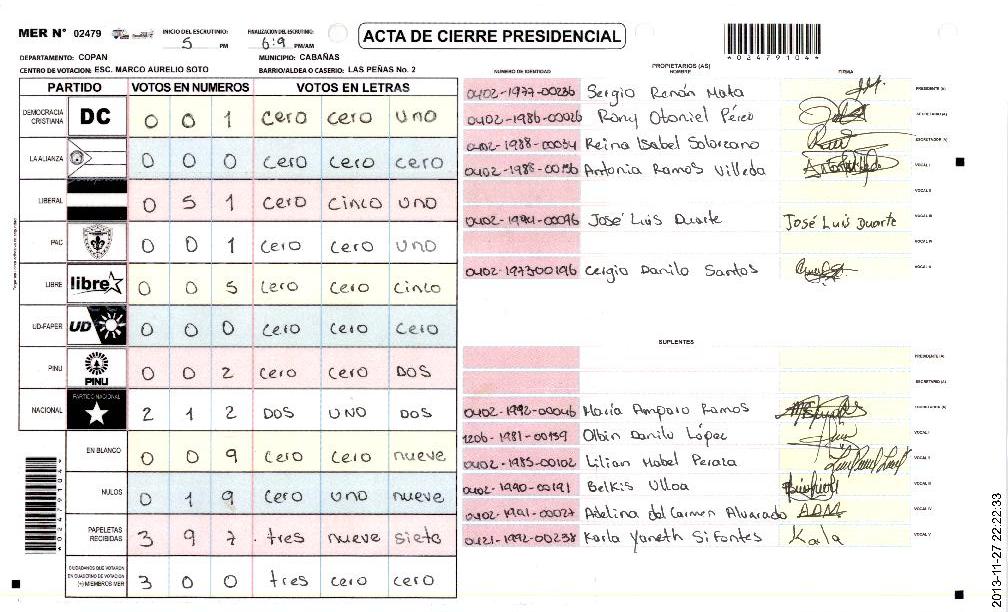 MER N° 02479
INICIO DEL ESCRUTINIO: 5 PM
FINALIZACION DEL ESCRUTINIO: 6:9 PM/AM
ACTA DE CIERRE PRESIDENCIAL
*02479104*
DEPARTAMENTO: COPAN
MUNICIPIO: CABAÑAS
CENTRO DE VOTACION: ESC. MARCO AURELIO SOTO
BARRIO/ALDEA O CASERIO: LAS PEÑAS No. 2
PARTIDO VOTOS EN NUMEROS VOTOS EN LETRAS
DEMOCRACIA CRISTIANA DC 0 0 1 cero cero uno
LA ALIANZA 0 0 0 cero cero cero
LIBERAL 0 5 1 cero cinco uno
PAC 0 0 1 cero cero uno
LIBRE libre 0 0 5 cero cero cinco
UD-FAPER UD 0 0 0 cero cero cero
PINU PINU 0 0 2 cero cero DOS
NACIONAL PARTIDO NACIONAL 2 1 2 DOS UNO DOS
EN BLANCO 0 0 9 cero cero nueve
NULOS 0 1 9 cero uno nueve
PAPELETAS RECIBIDAS 3 9 7 tres nueve siete
CIUDADANOS QUE VOTARON EN CUADERNO DE VOTACION (+) MIEMBROS MER 3 0 0 tres cero cero
*02479104*
PROPIETARIOS (AS)
NUMERO DE IDENTIDAD NOMBRE FIRMA
0402-1977-00286 Sergio Renán Mata PRESIDENTE (A)
0402-1986-00026 Rony Otoniel Pérez SECRETARIO (A)
0402-1988-00034 Reina Isabel Solorzano ESCRUTADOR (A)
0402-1988-00156 Antonia Ramos Villeda VOCAL I
VOCAL II
0402-1994-00096 José Luis Duarte José Luis Duarte VOCAL III
VOCAL IV
0402-197300196 Cergio Danilo Santos VOCAL V
SUPLENTES
PRESIDENTE (A)
SECRETARIO (A)
0402-1992-00046 María Amparo Ramos ESCRUTADOR (A)
1206-1981-00159 Olbin Danilo López VOCAL I
0402-1985-00102 Lilian Mabel Peraza VOCAL II
0402-1990-00191 Belkis Ulloa VOCAL III
0402-1991-00027 Adelina del Carmen Alvarado VOCAL IV
0421-1992-00238 Karla Yaneth Sifontes Karla VOCAL V
2013-11-27 22:22:33